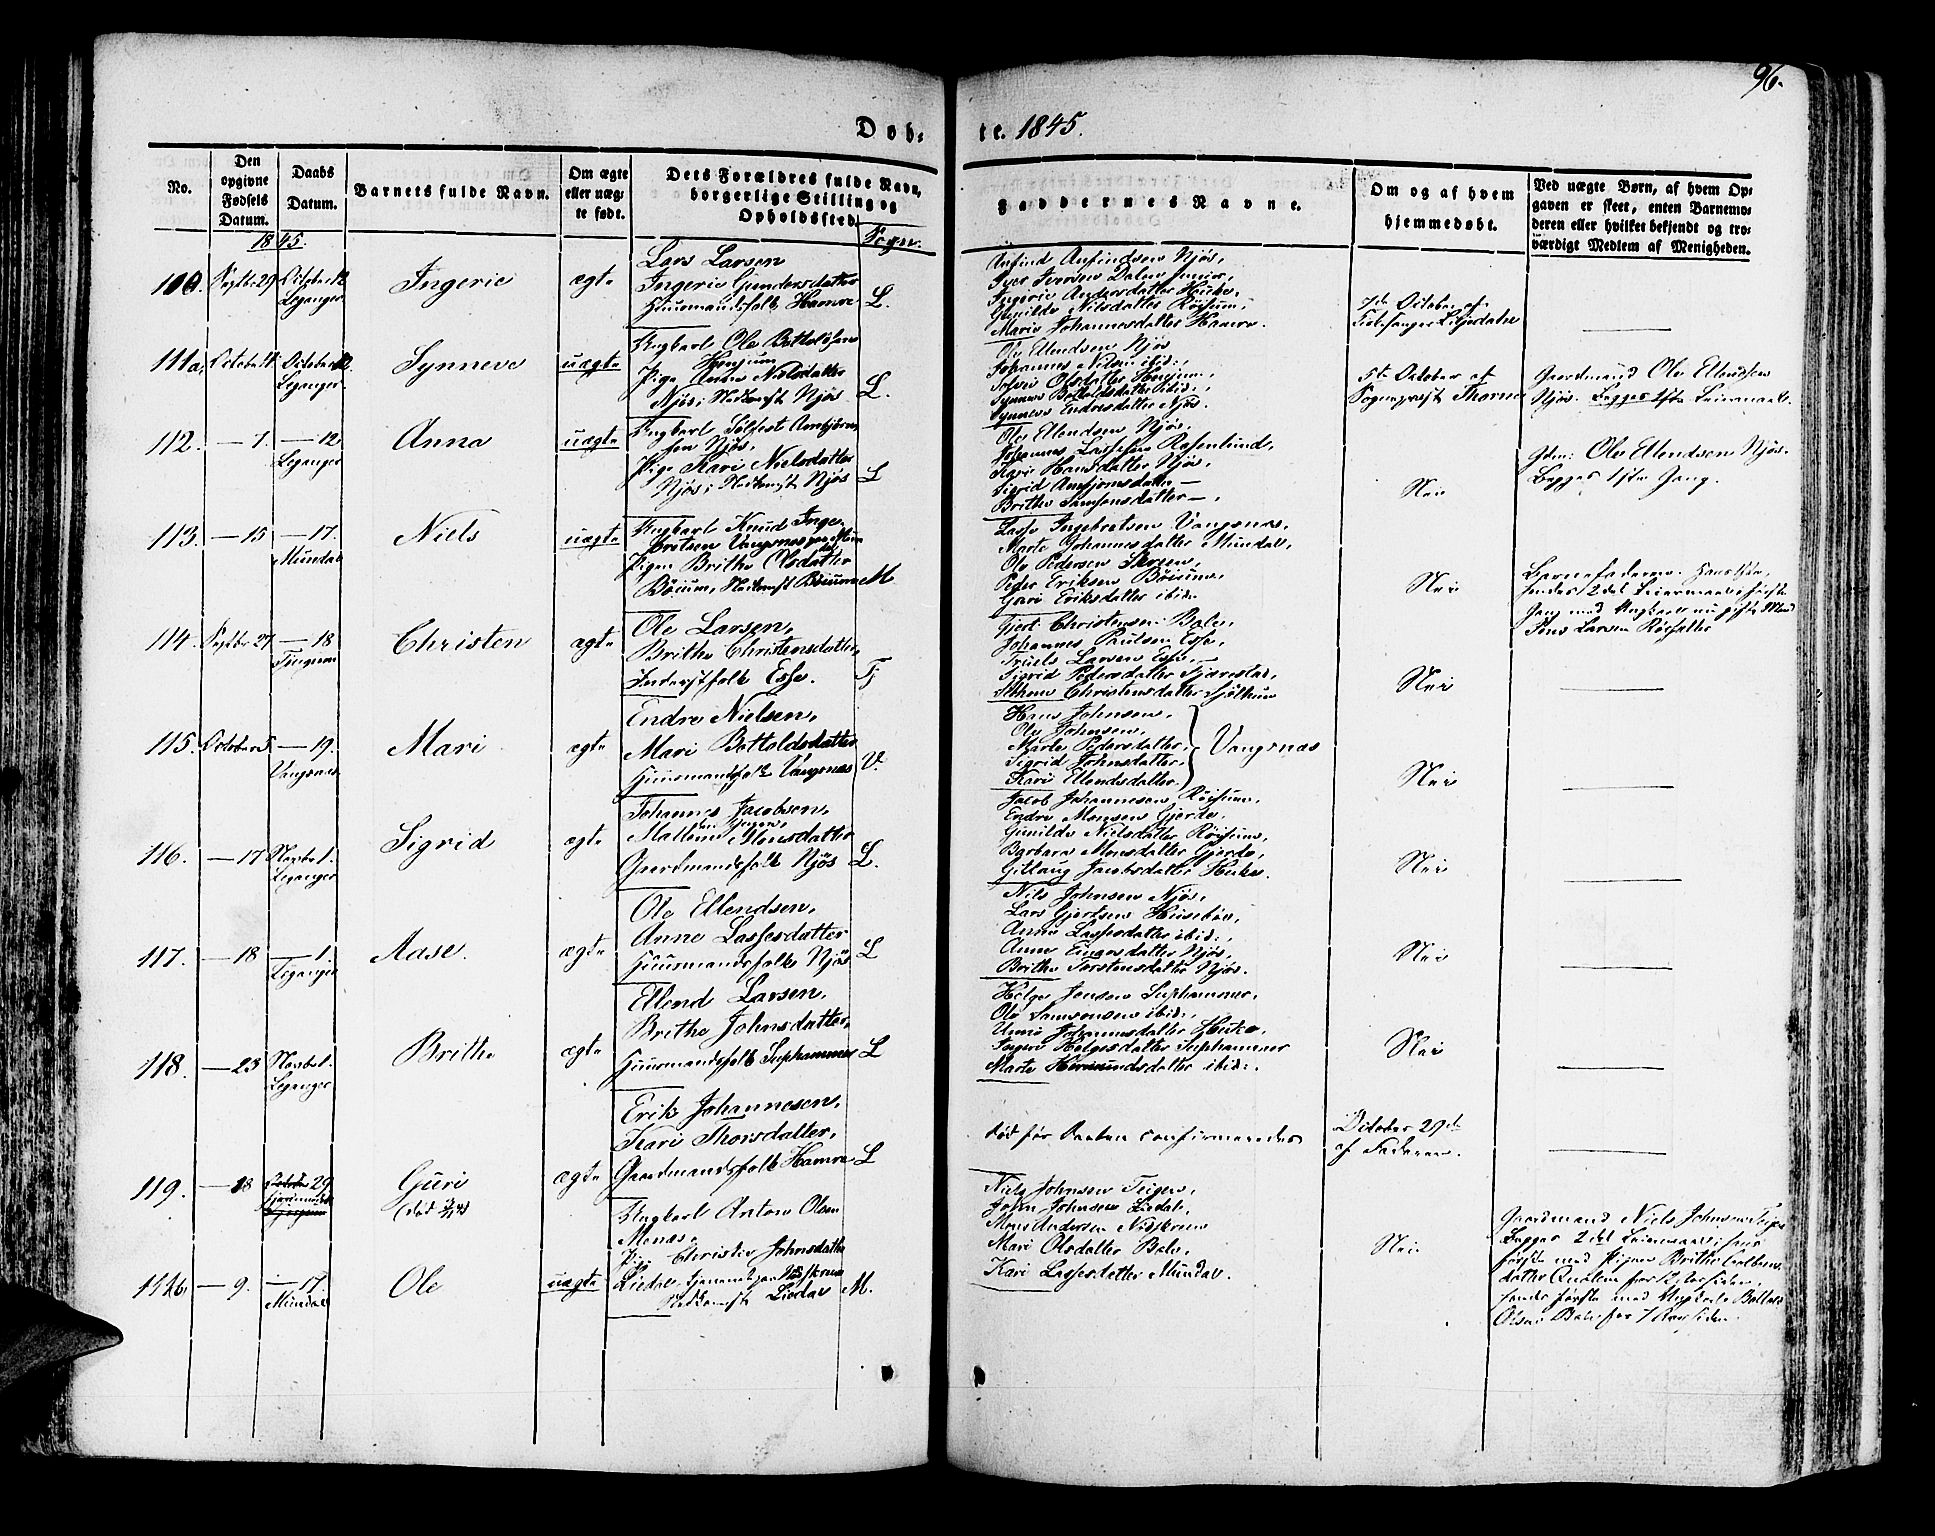 96.
Døb-
te. 1845.
No.
Den
opgivne
Fødsels
Datum.
Daabs
Datum.
Barnets fulde Navn.
Om ægte
eller uæg-
te født.
Dets Forældres fulde Navn,
borgerlige Stilling og
Opholdssted
Sogn.
Faddernes Navne.
Om og af hvem
hjemmedøbt.
Ved uægte Børn, af hvem Op-
gaven er skeet, enten Barnemo-
deren eller hvilket bekjendt og tro-
værdigt Medlem af Menigheden.
1845.
110. Septbr 29 October 12
Leganger
Ingerie
ægte
Lars Larsen
Ingerie Gundersdatter
Huusmandsfolk Hamre
L.
Anfind Anfindsen Njøs,
Iver Iversen Dalen Junior,
Ingerie Andersdatter
Gunilde Nilsdatter Röisum,
Marie Johannesdatter Hamre.
7de October af
111a, October 4 October 12.
Leganger
Synneve
uægte
Ungkarl Ole Bottolfsen
Henjum
Pige Anna Nielsdatter
Njøs
Njøs
L.
Ole Ellendsen Njøs
Johannes Nilsen ibid:,
Olsdatter Henjum,
Synneve Bottolfsdatter ibid:,
Synneve Endresdatter Njøs.
5te October af
Sogneprest Thorne
Gaardmand Ole Ellendsen
Njøs. Begges 1ste Leiermaal.
112. — 7. — 12
Leganger
Anna
uægte
Ungkarl Sølfest Ambjørn-
sen Njøs,
Pige Kari Nielsdatter
Njøs
Njøs
L
Ole Ellendsen Njøs,
Johannes Lassesen Rosenlund,
Kari Hansdatter Njøs,
Sigrid Ambjørnsdatter —
Brithe Samsonsdatter —,
Nei
Gdm: Ole Ellendsen Njøs.
Begges 1ste Gang.
113. — 15 — 17.
Mundal
Niels
uægte
Ungkarl Knud Inge-
bretsen Vangsnes
Pigen Brithe Olsdatter
Böium, Böium
M
Lasse Ingebretsen Vangsnes,
Marte Johannesdatter Mundal,
Ole Pedersen Skreen,
Peder Eriksen Böium,
Guri Eriksdatter ibid:
Nei
Barnefaderen.
hendes 2det Leiermaal, første
Gang med Ungkarl nu gifte Mand
Jens Larsen
114. Septbr 27 — 18
Tjugum
Christen
ægte
Ole Larsen,
Brithe Christensdatter,
Inderstfolk Esse.
Tj
Gjert Christensen Bale,
Johannes Paulsen Esse,
Truels Larsen Esse,
Sigrid Pedersdatter Tjærestad,
Christensdatter
Nei
115. October 5. — 19.
Vangsnes
Mari
ægte
Endre Nielsen,
Mari Bottoldsdatter
Huusmandsfolk Vangsnes
V.
Hans Johnsen,
Ole Johnsen,
Marte Pedersdatter,
Sigrid Johnsdatter,
Kari Ellendsdatter.
Vangsnes
Nei
116. — 17 Novbr 1.
Leganger
Sigrid
ægte
Johannes Jacobsen,
Monsdatter
Gaardmandsfolk Njøs
L.
Jacob Johannesen Röisum,
Endre Monsen Gjerde,
Gunilde Nielsdatter Röisum,
Barbara Monsdatter Gjerde,
Gitlaug Jacobsdatter
Nei
117. — 18 — 1.
Leganger
Aase.
ægte
Ole Ellendsen,
Anne Lassesdatter
Huusmandsfolk Njøs
L
Nils Johnsen Njøs,
Lars Gjertsen Husebøe,
Anne Lassesdatter ibid:,
Anne Einarsdatter Njøs,
Brithe Torstensdatter Njøs.
Nei
118. — 23 Novbr 1.
Leganger
Brithe
ægte
Ellend Larsen,
Brithe Johnsdatter,
Huusmandsfolk Suphammer
L
Helge Jensen Suphammer,
Ole Samsonsen ibid:,
Unni Johannesdatter
Ingeri Helgesdatter Suphammer
Marte Hermundsdatter ibid:.
Nei
119. — 18 October 29
Guri
(død
ægte
Erik Johannesen,
Kari Thorsdatter,
Gaardmandsfolk Hamre
L
død før Daaben confirmeredes
October 29de
af Faderen.
111b, — 9. — 17.
Mundal
Ole
uægte
Ungkarl Anton Olsen
Menes.
Pige Christie Johnsdatter
Liedal
Liedal
M.
Niels Johnsen Teigen,
John Johnsen Liedal,
Mons Andersen
Mari Olsdatter Bale,
Kari Lassesdatter Mundal.
Nei.
Gaardmand Niels Johnsen Teigen
Begges 2det Leiermaal; hans
første med Pigen Brithe
datter
hendes første med Ungkarl
Olsen Bale for 7 Aar siden.